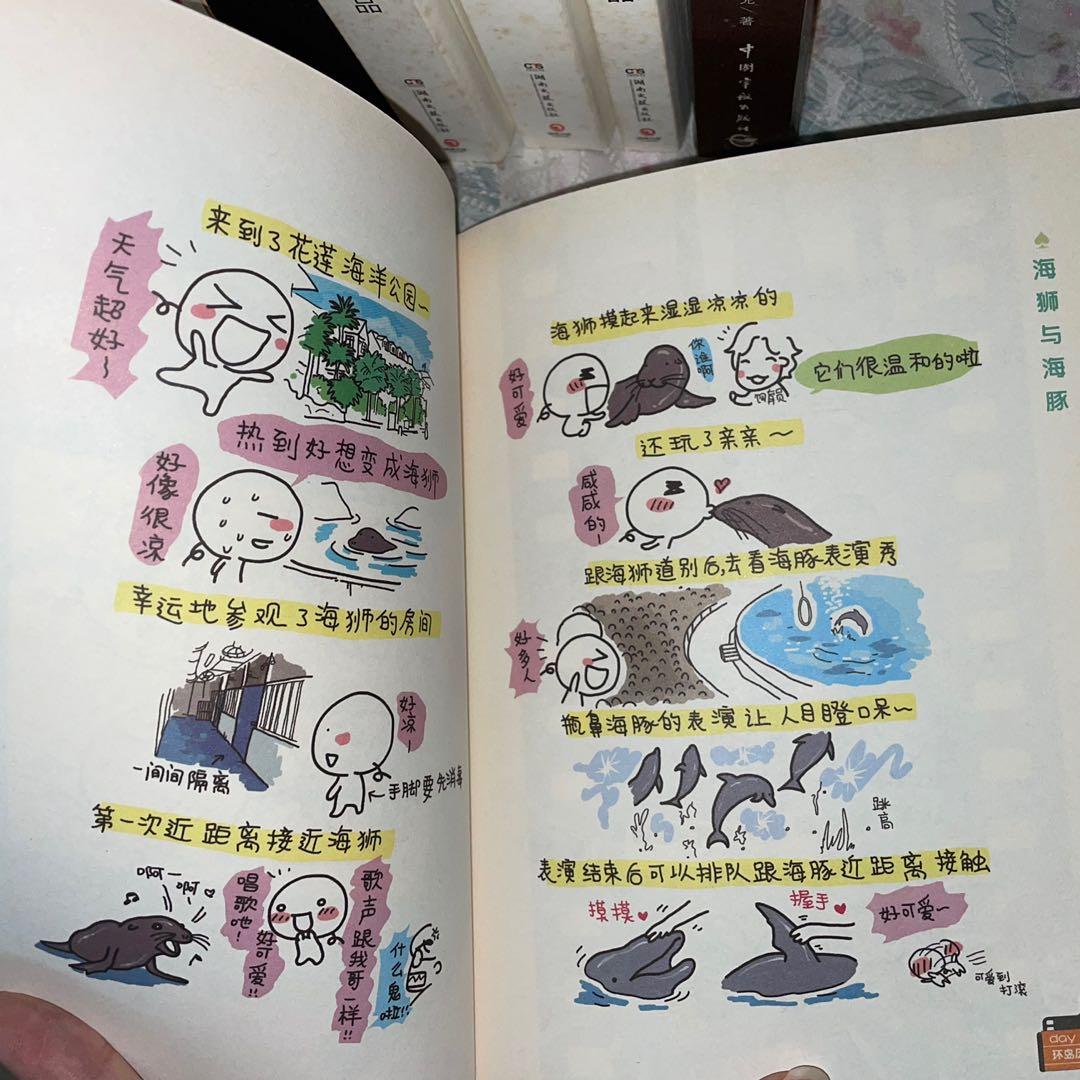 品
湖南文艺出版社
湖南文艺出版社
著
来到了花莲海洋公园~
天气超好~
热到好想变成海狮
好像很凉
幸运地参观了海狮的房间
一间间隔离
好凉~
←手脚要先消毒
第一次近距离接近海狮
啊—啊♪
唱歌吔!
好可爱!!
歌声跟我哥一样!!
什么鬼啦!!
♠海狮与海豚
海狮摸起来湿湿凉凉的
好可爱
你谁啊
饲育员
它们很温和的啦
还玩了亲亲~
咸咸的~
跟海狮道别后,去看海豚表演秀
好多人
瓶鼻海豚的表演让人目瞪口呆~
跳高
表演结束后可以排队跟海豚近距离接触
摸摸♥
握手♥
好可爱~
可爱到打滚
day
环岛